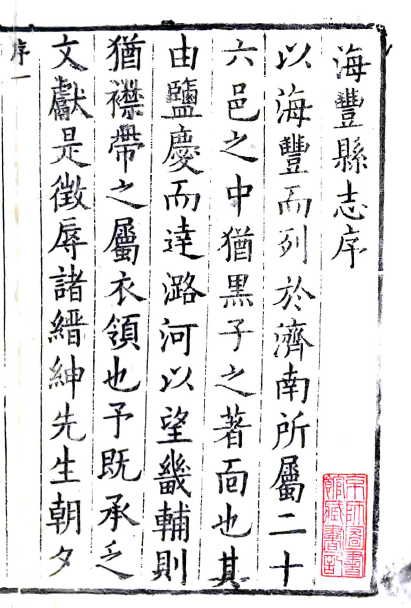 海豐縣志序
以海豐而列於濟南所屬二十
六邑之中猶黑子之著面也其
由鹽慶而達潞河以望畿輔則
猶襟帶之屬衣領也予既承乏
文獻是徵辱諸縉紳先生朝夕
序一